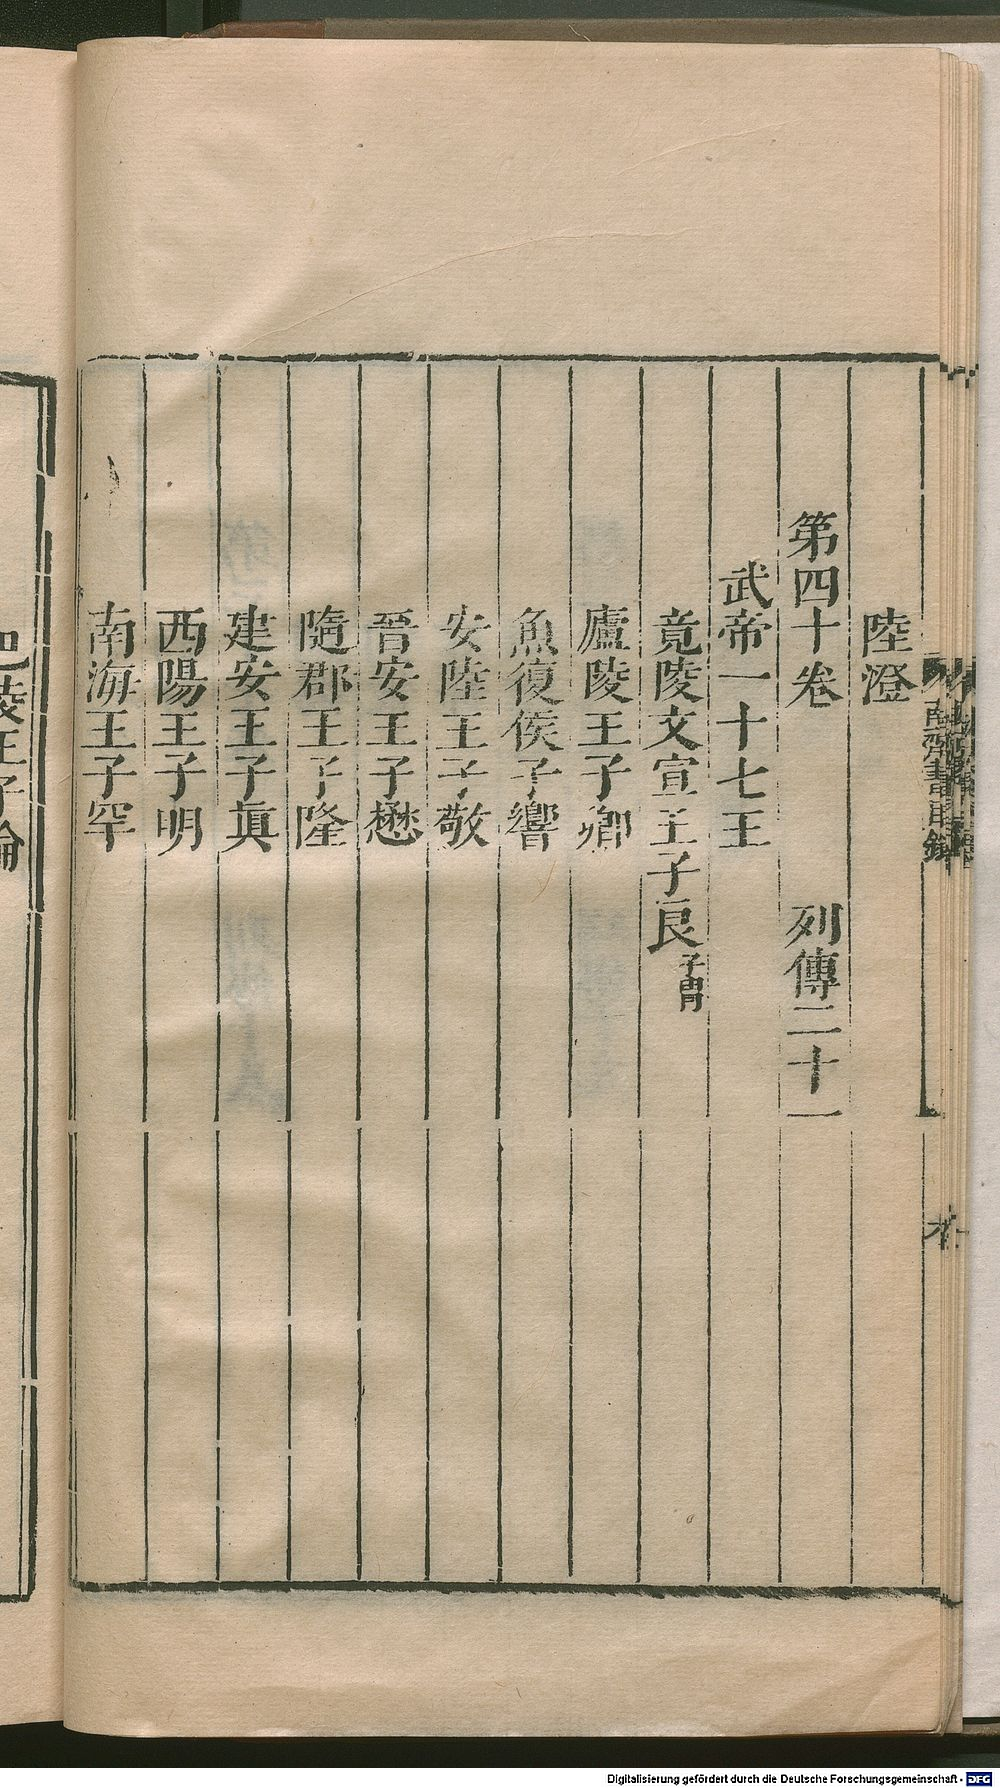 陸澄
第四十卷 列傳二十一
武帝一十七王
竟陵文宣王子良 子冑
廬陵王子卿
魚復侯子響
安陸王子敬
晉安王子懋
隨郡王子隆
建安王子眞
西陽王子明
南海王子罕
巴陵王子倫
南齊書目錄
Digitalisierung gefördert durch die Deutsche Forschungsgemeinschaft - DFG